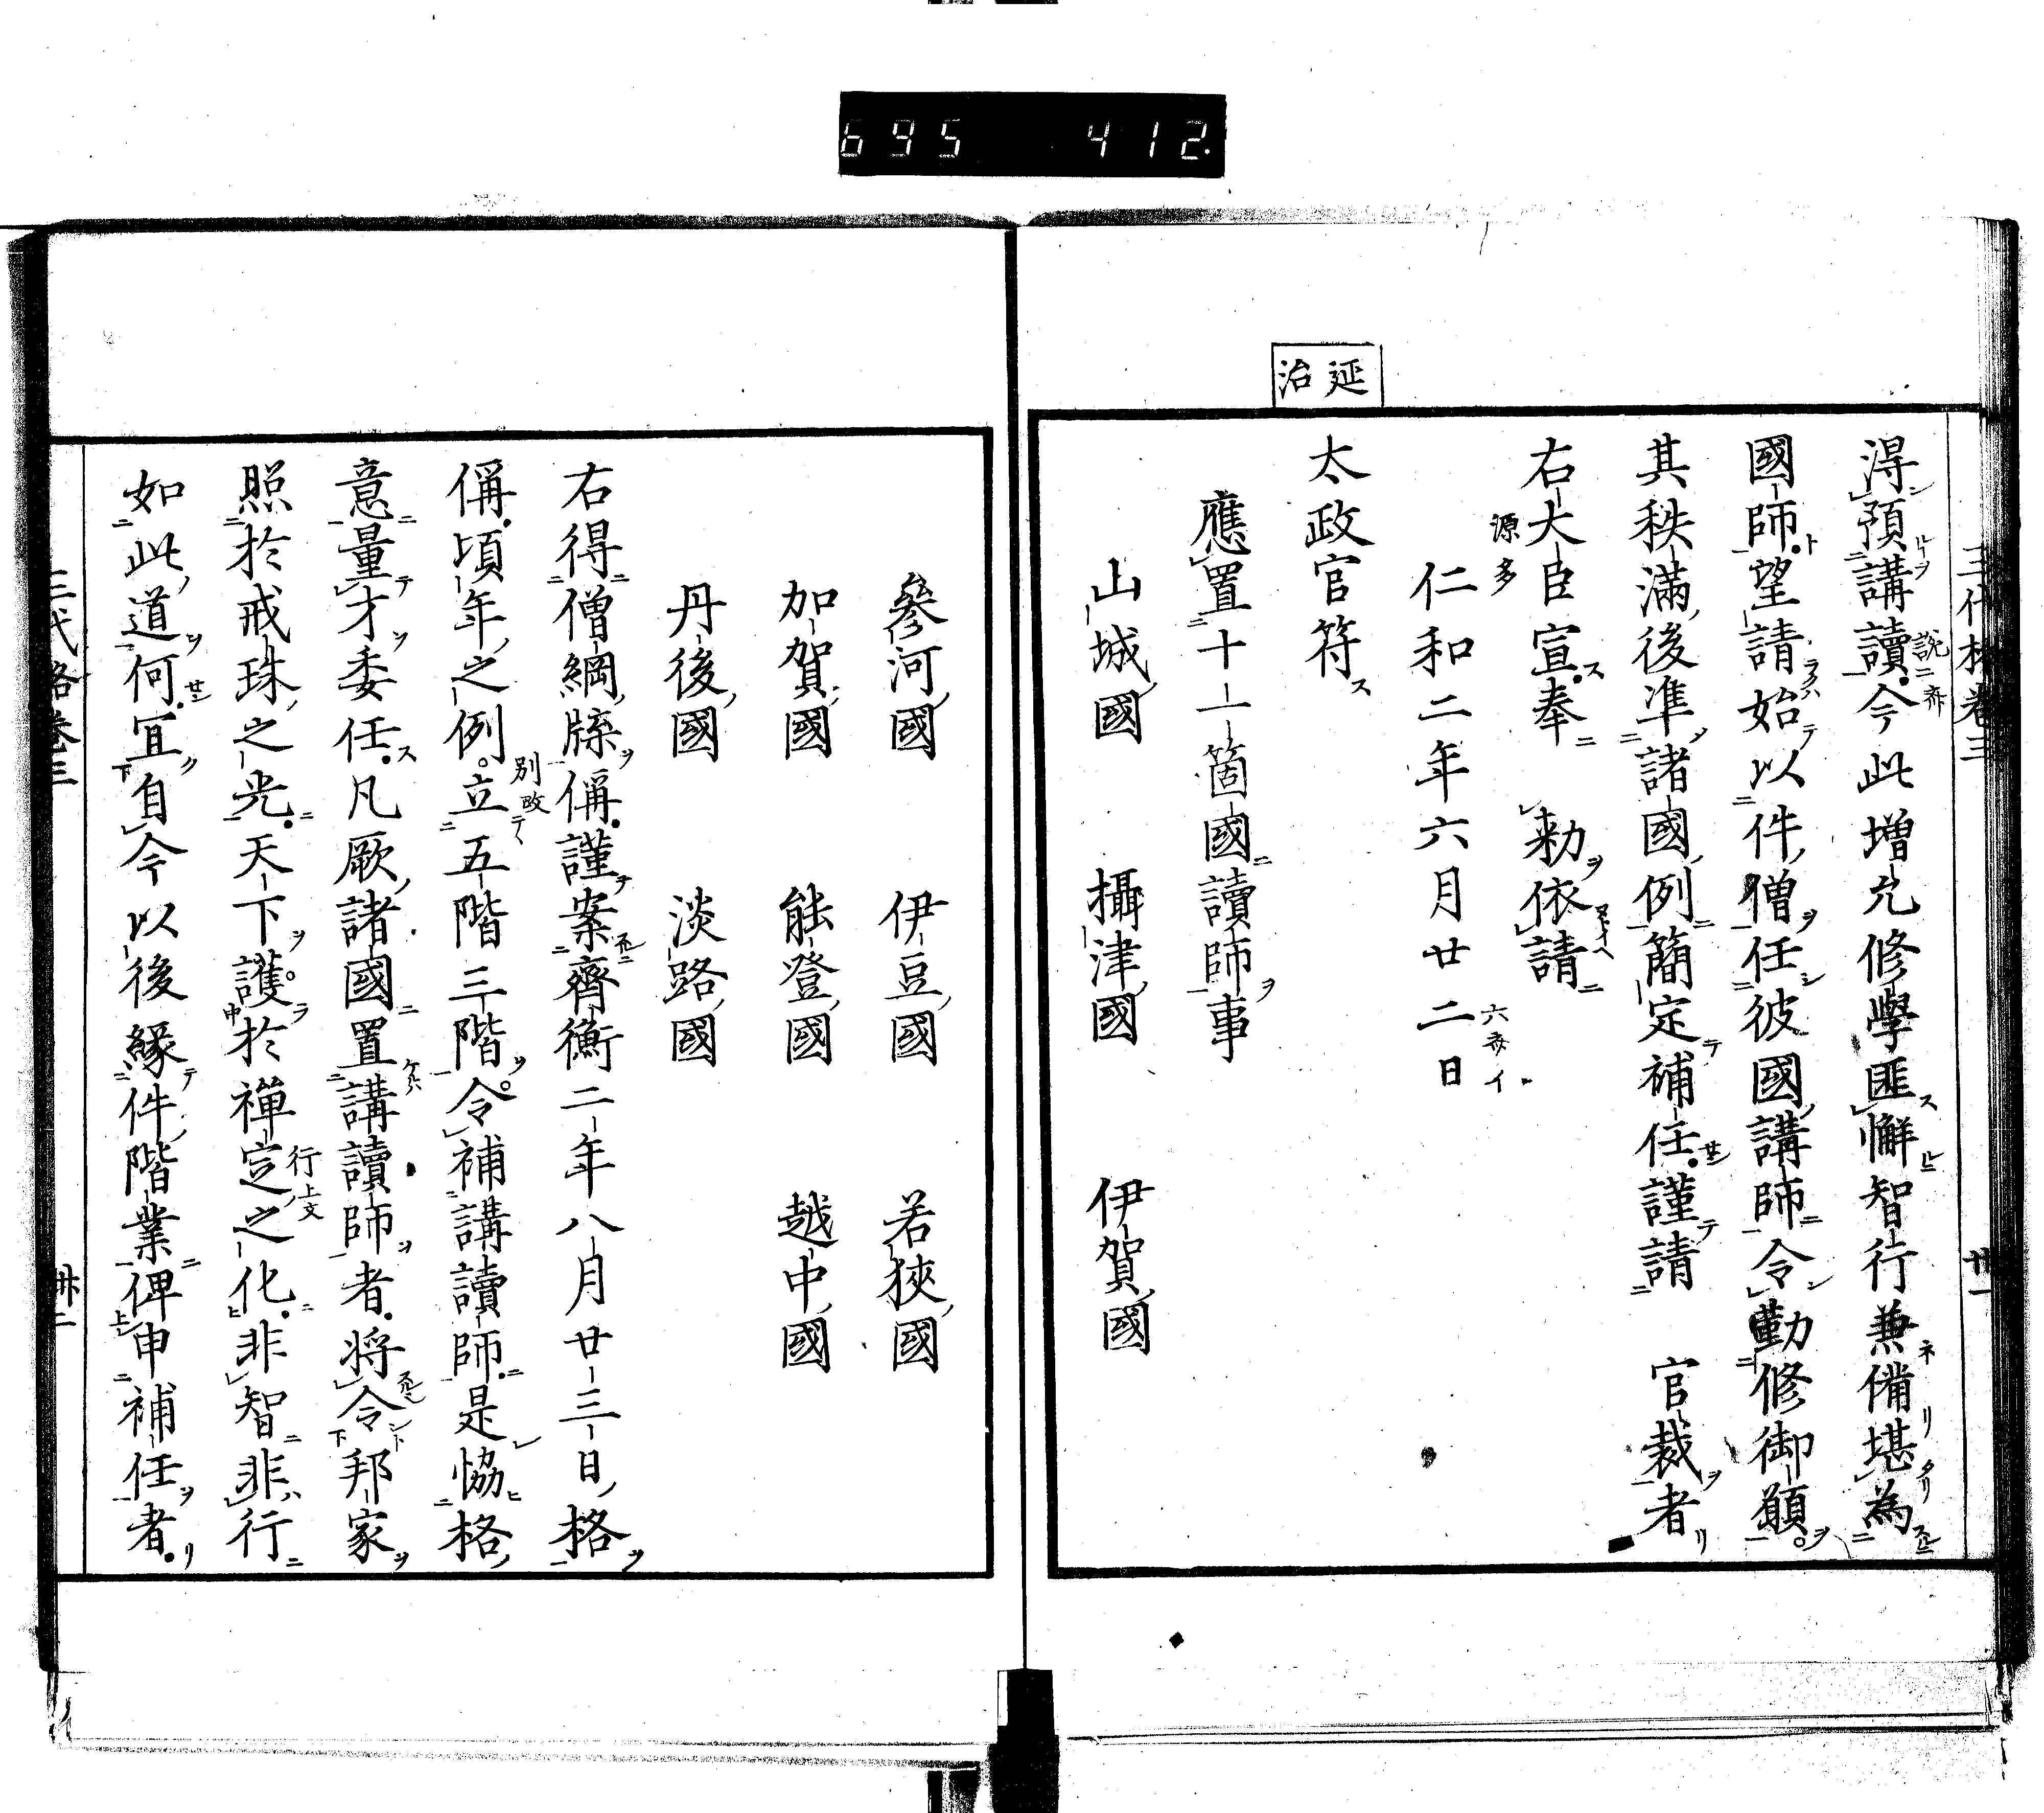 695 412.
三代格卷三 卅一
延治
得預講讀今此增允修學匪懈智行兼備堪為
國師望請始以件僧任彼國講師令勤修御願
其秩滿後准諸國例簡定補任謹請 官裁者
右大臣宣奉 勅依請
源多
仁和二年六月廿二日
太政官符
應置十一箇國讀師事
山城國 攝津國 伊賀國
參河國 伊豆國 若狹國
加賀國 能登國 越中國
丹後國 淡路國
右得僧綱牒偁謹案齊衡二年八月廿三日格
偁頃年之例立五階三階令補講讀師是協格
別改
意量才委任凡厥諸國置講讀師者將令邦家
照於戒珠之光天下護於禪定之化非智非行
行上文
如此道何宜自今以後緣件階業俾申補任者
三代格卷三 卅二